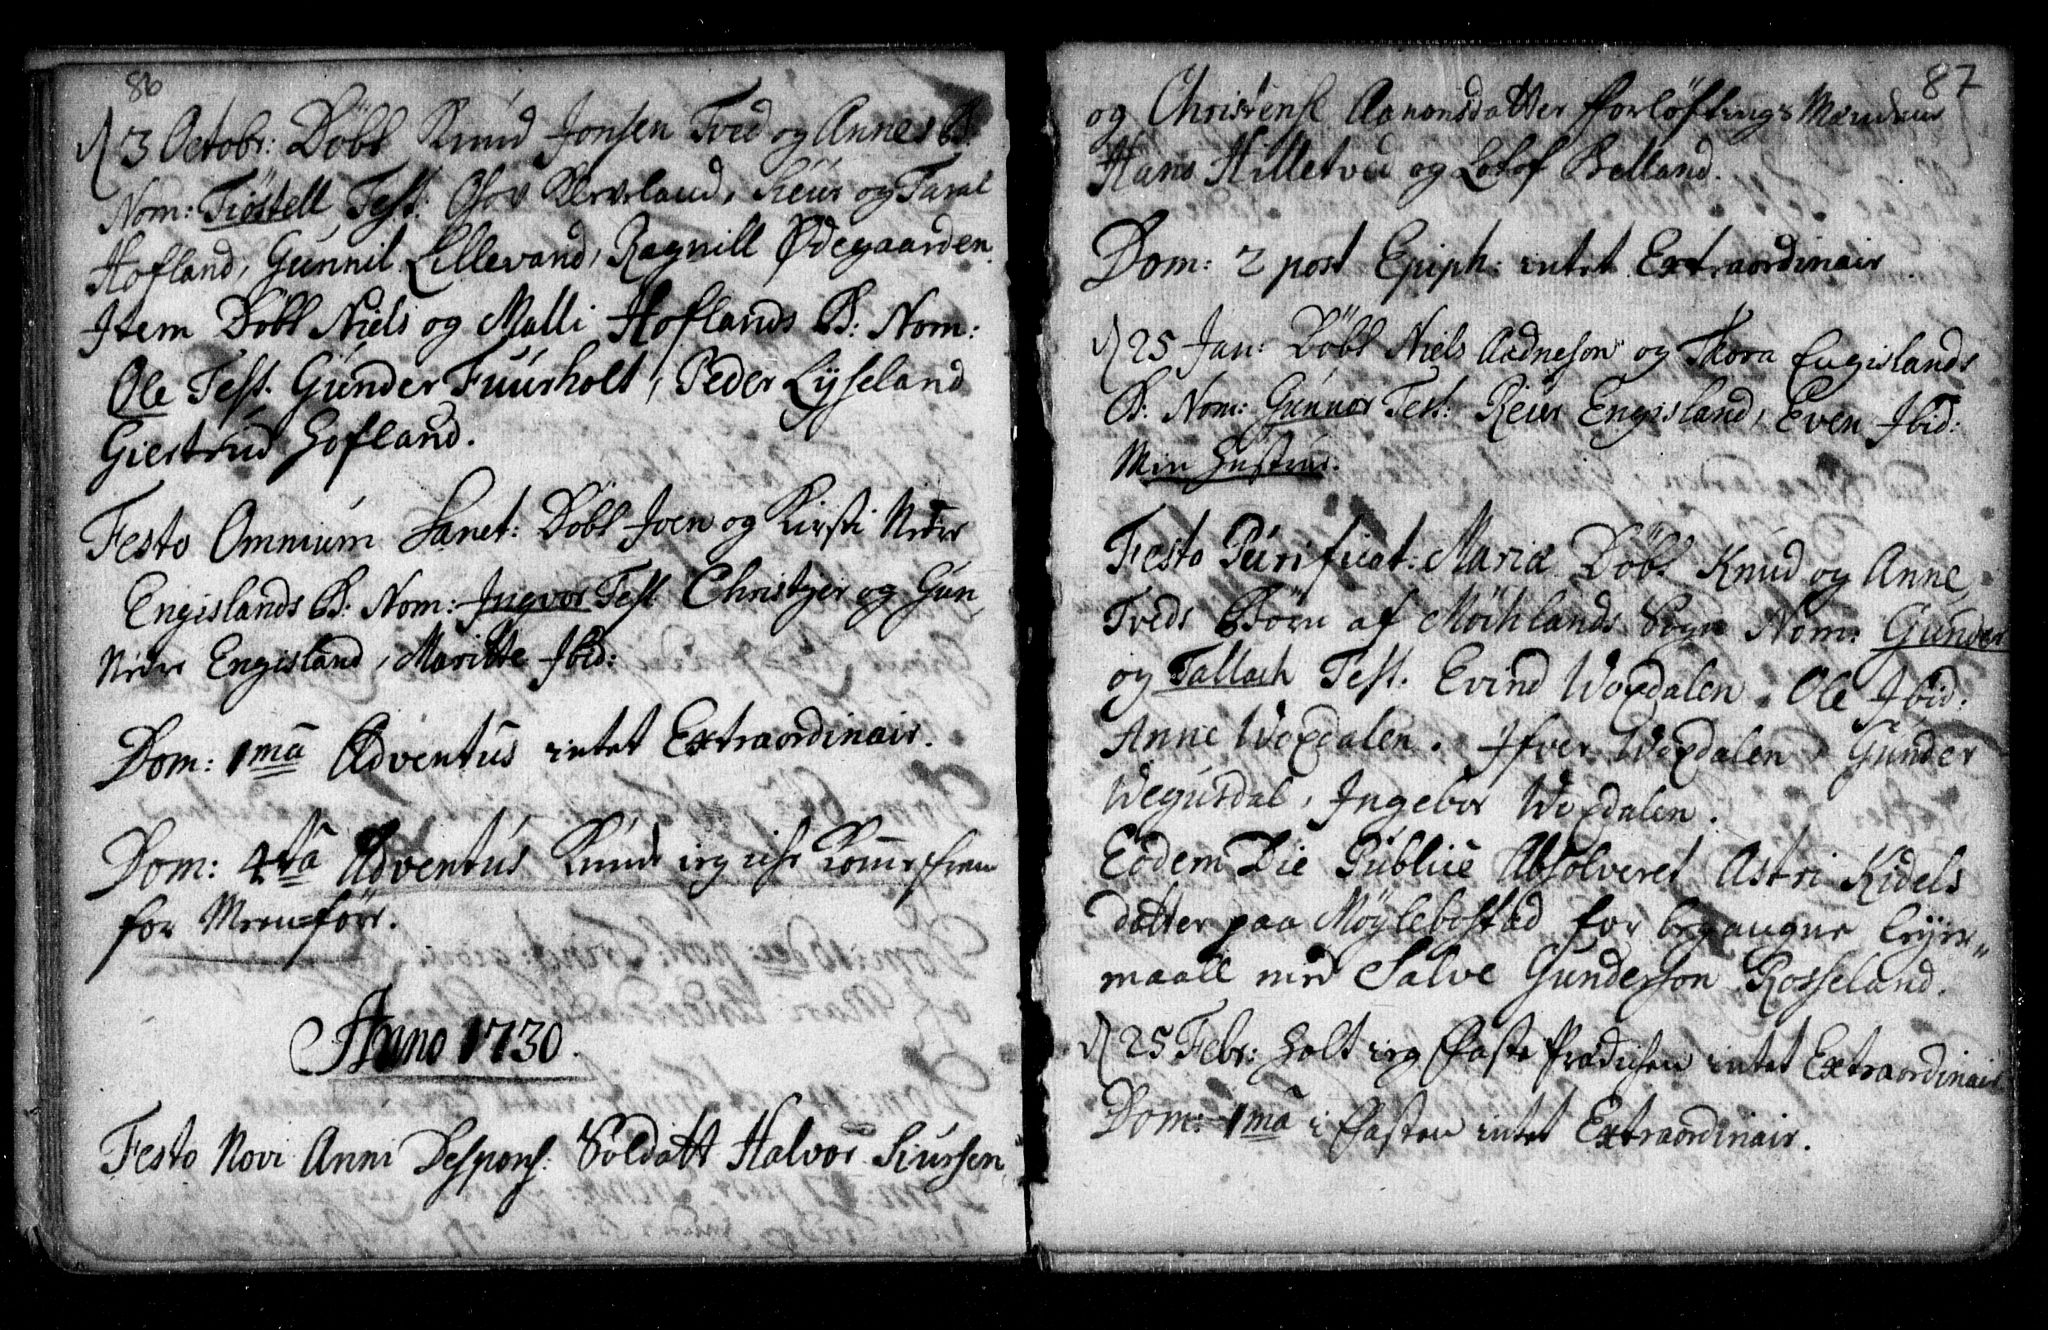 86
d 3 Octobr: Döbt Knud Jonsen Tved og Annes B:
Nom: Tiöstell Test: Olov Berveland, Siur og Taral
Hofland, Gunnil Lillevand, Ragnill Ødegaarden.
Item Döbt Niels og Malli Hoflands B: Nom:
Ole Test. Gunder Fuurholt, Peder Lyseland
Giertrud Hofland.
Festo Omnium Sanct: Döbt Joen og Kirsti Nedre
Engislands B: Nom: Ingvor Test Christzer og Gun,
Nedre Engisland, Maritte Ibid:
Dom: 1mâ Adventus intet Extraordinair.
Dom: 4tâ Adventus Kunde ieg icke komme frem
for Meen=före.
Anno 1730.
Festo Novi Anni Despons: Soldatt Halvor Siursen
87
og Christense Aanonsdatter Forlöftnings Mændene
Hans Hilletved og Lolof Belland.
Dom: 2 post Epiph: intet Extraordinair.
d 25 Jan: Döbt Niels Aadneson og Thora Engislands
B: Nom: Gunnor Test: Reiar Engisland, Even Ibid:
Min Hustrue.
Festo Purificat: Mariæ Döbt Knud og Anne
Tveds Börn af Möchlands Sogn Nom: Gunder
og Tallach Test. Evind Woxdalen, Ole Ibid:
Anne Woxdalen. Ifver Woxdalen, Gunder
Wegusdal, Ingebor Woxdalen.
Eodem Die Publice Absolveret Astri Kidels
datter paa Möylebostad for begangne Leyer„
maall med Salve Gunderson Rosseland.
d 25 Febr: holt ieg Faste Prædichen intet Extraordinair
Dom: 1mâ i Fasten intet Extraordinair.